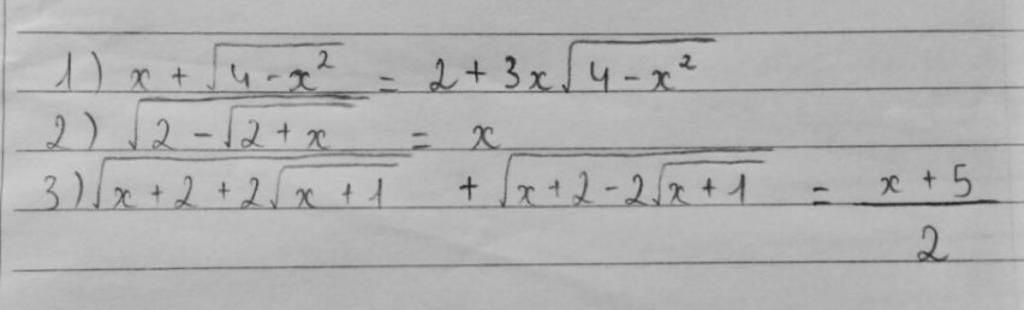 1) x + √(4 - x²) = 2 + 3x√(4 - x²)
2) √(2 - √(2 + x)) = x
3) √(x + 2 + 2√(x + 1)) + √(x + 2 - 2√(x + 1)) = (x + 5)/2